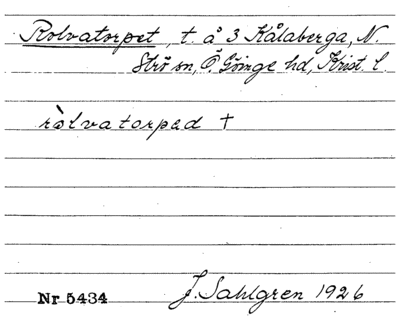 Rolvatorpet, t. å 3 Kålaberga, N.
Strö sn, Ö. Göinge hd, Krist. l.
ròlvatorpad †
Nr 5434 J. Sahlgren 1926